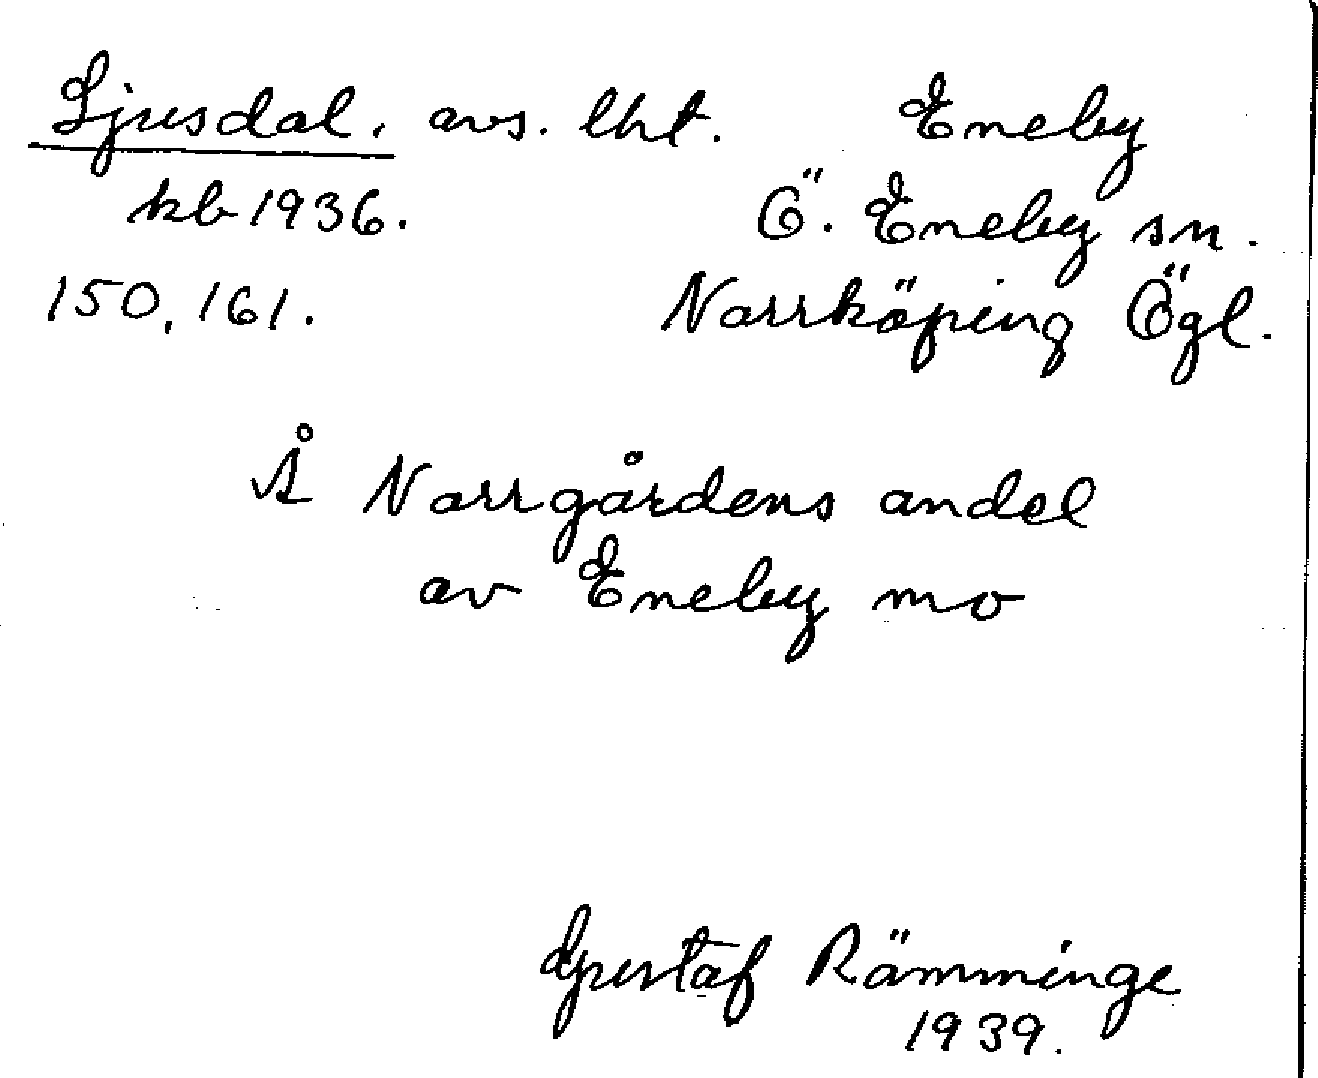 Ljusdal, avs. lht. Eneby
kb 1936. Ö. Eneby sn.
150, 161. Norrköping Ögl.
Å Norrgårdens andel
av Eneby mo
Gustaf Rämminge
1939.